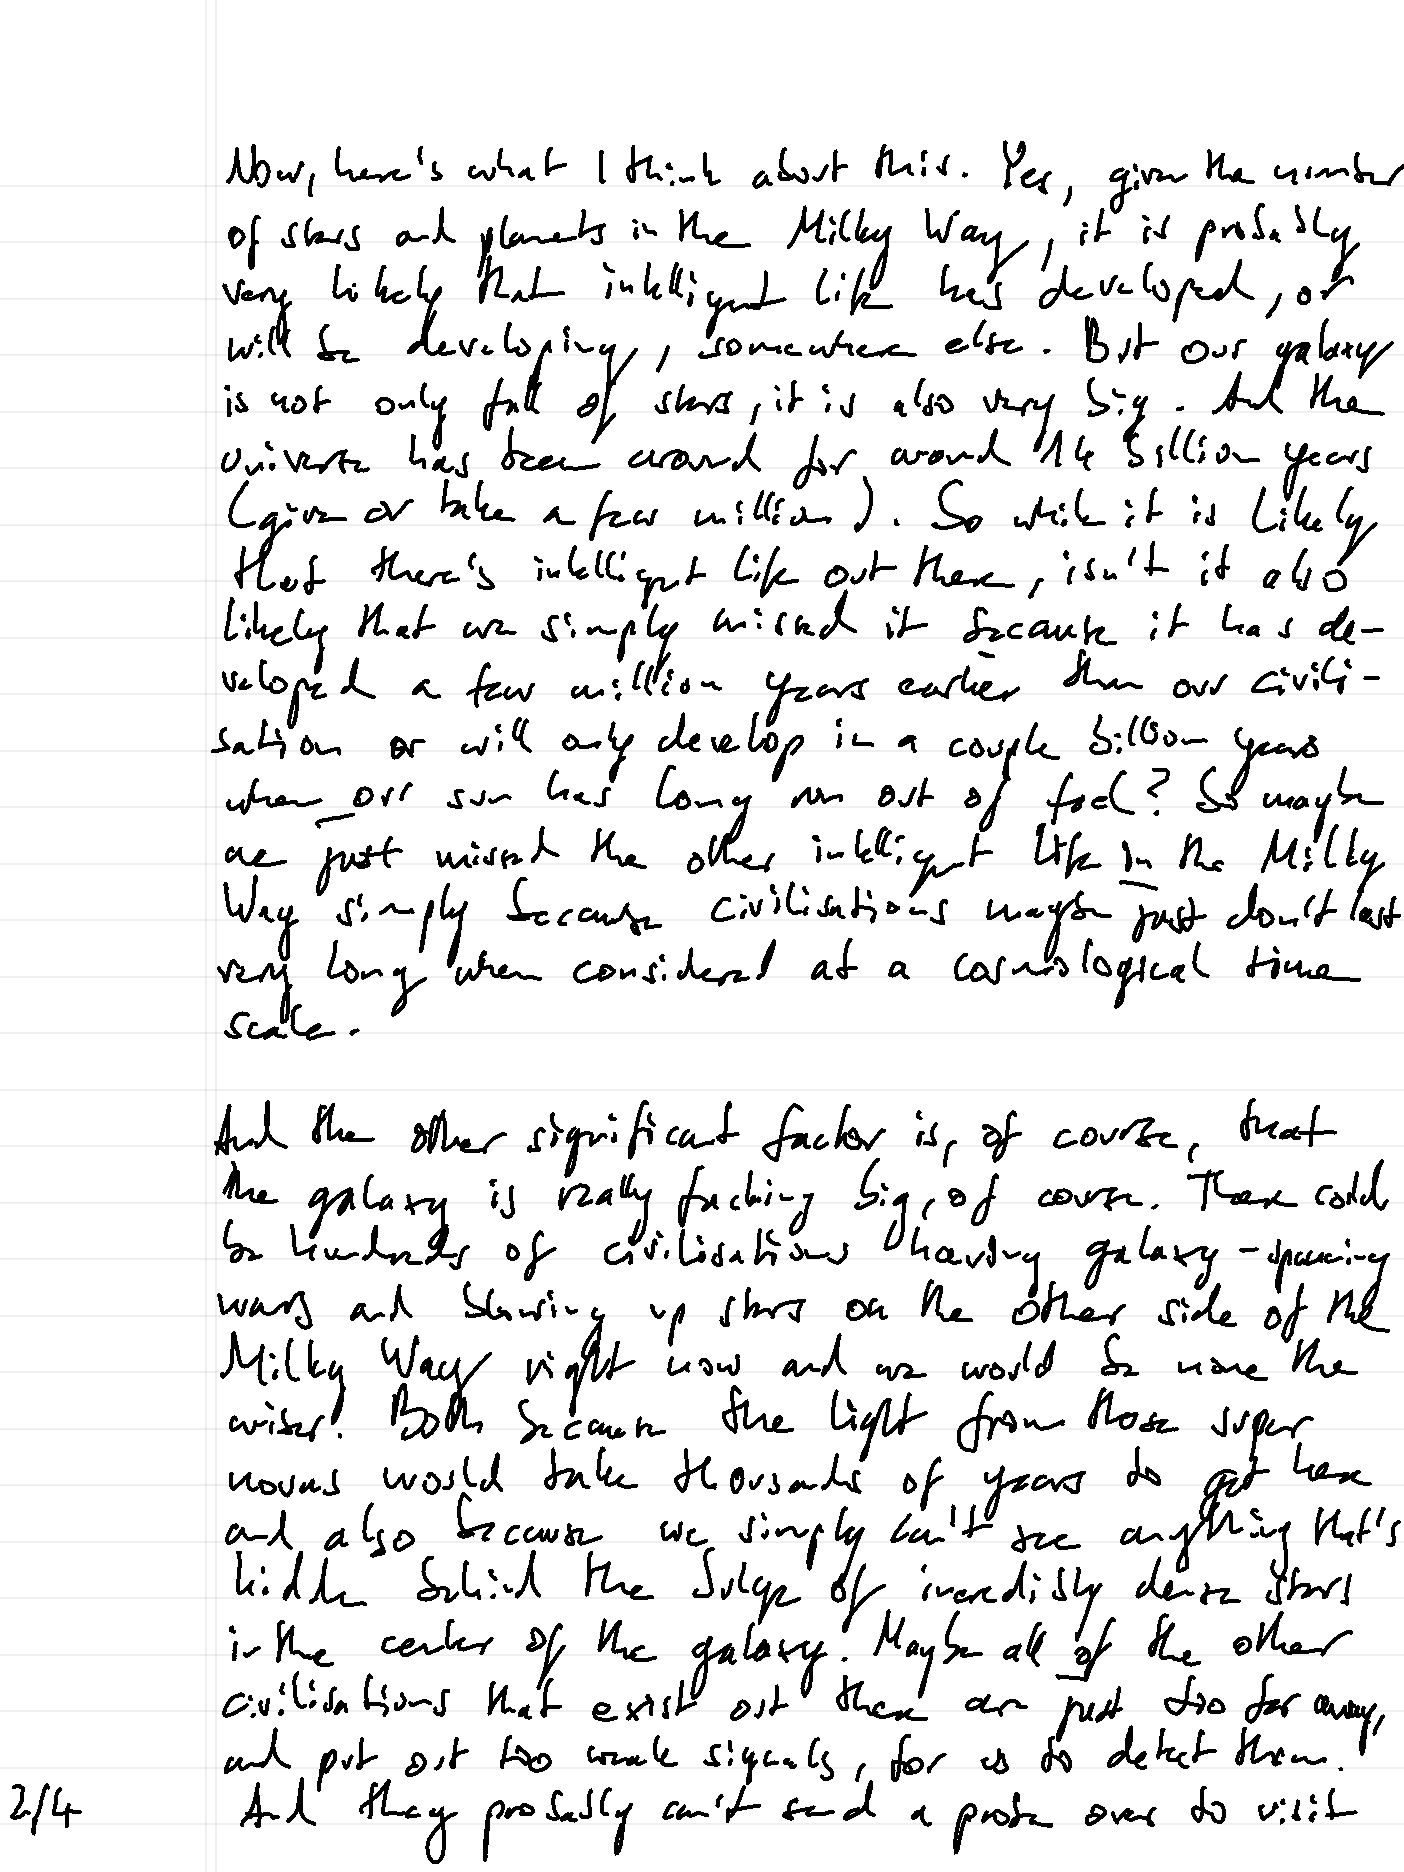 Now, here's what I think about this. Yes, given the number
of stars and planets in the Milky Way, it is probably
very likely that intelligent life has developed, or
will be developing, somewhere else. But our galaxy
is not only full of stars, it is also very big. And the
universe has been around for around 14 billion years
(give or take a few million). So while it is likely
that there's intelligent life out there, isn't it also
likely that we simply missed it because it has de-
veloped a few million years earlier than our civili-
sation or will only develop in a couple billion years
when our sun has long run out of fuel? So maybe
we just missed the other intelligent life in the Milky
Way simply because civilisations maybe just don't last
very long when considered at a cosmological time
scale.
And the other significant factor is, of course, that
the galaxy is really fucking big, of course. There could
be hundreds of civilisations having galaxy-spanning
wars and blowing up stars on the other side of the
Milky Way right now and we would be none the
wiser. Both because the light from those super
novas would take thousands of years to get here
and also because we simply can't see anything that's
hidden behind the bulge of incredibly dense stars
in the center of the galaxy. Maybe all of the other
civilisations that exist out there are just too far away,
and put out too weak signals, for us to detect them.
2/4 And they probably can't send a probe over to visit